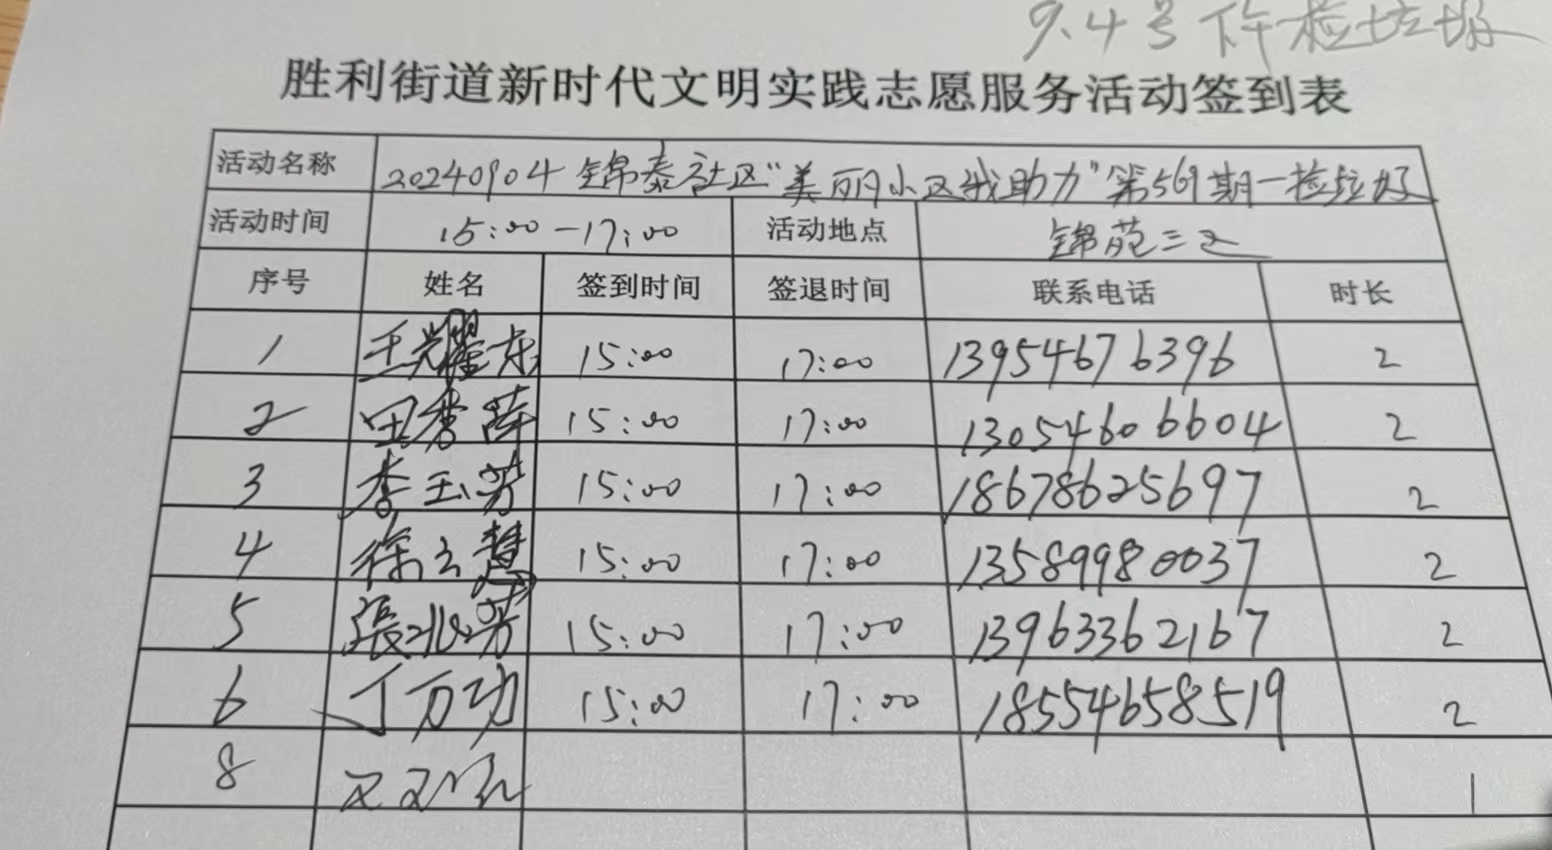 9.4号下午捡垃圾
胜利街道新时代文明实践志愿服务活动签到表
活动名称 20240904锦泰社区“美丽小区我助力”第569期一捡垃圾
活动时间 15:00-17:00 活动地点 锦苑三区
序号 姓名 签到时间 签退时间 联系电话 时长
1 王耀东 15:00 17:00 13954676396 2
2 田秀萍 15:00 17:00 13054606604 2
3 李玉芳 15:00 17:00 18678625697 2
4 徐立慧 15:00 17:00 13589980037 2
5 張北芳 15:00 17:00 13963362167 2
6 丁万功 15:00 17:00 18554658519 2
8 1